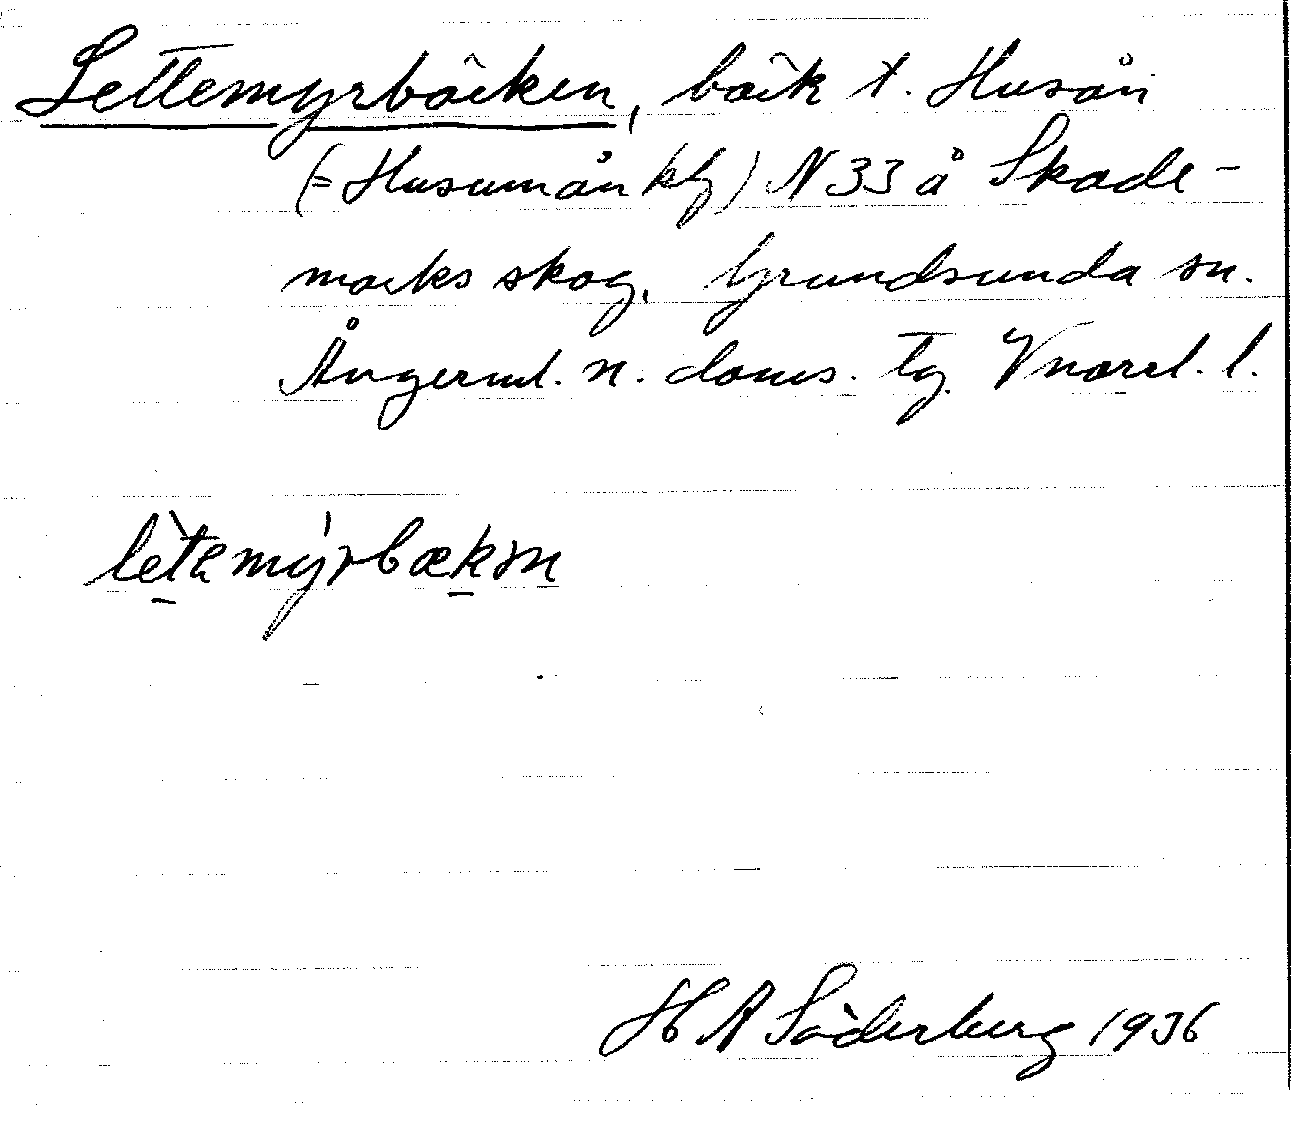 Lettemyrbäcken, bäck t. Husån
(= Husumån kbl) N 33 å Skade-
marks skog, Grundsunda sn.
Ångerml. n. doms. tg. Vnorrl. l.
lètamýrbækən
H A Söderberg 1936